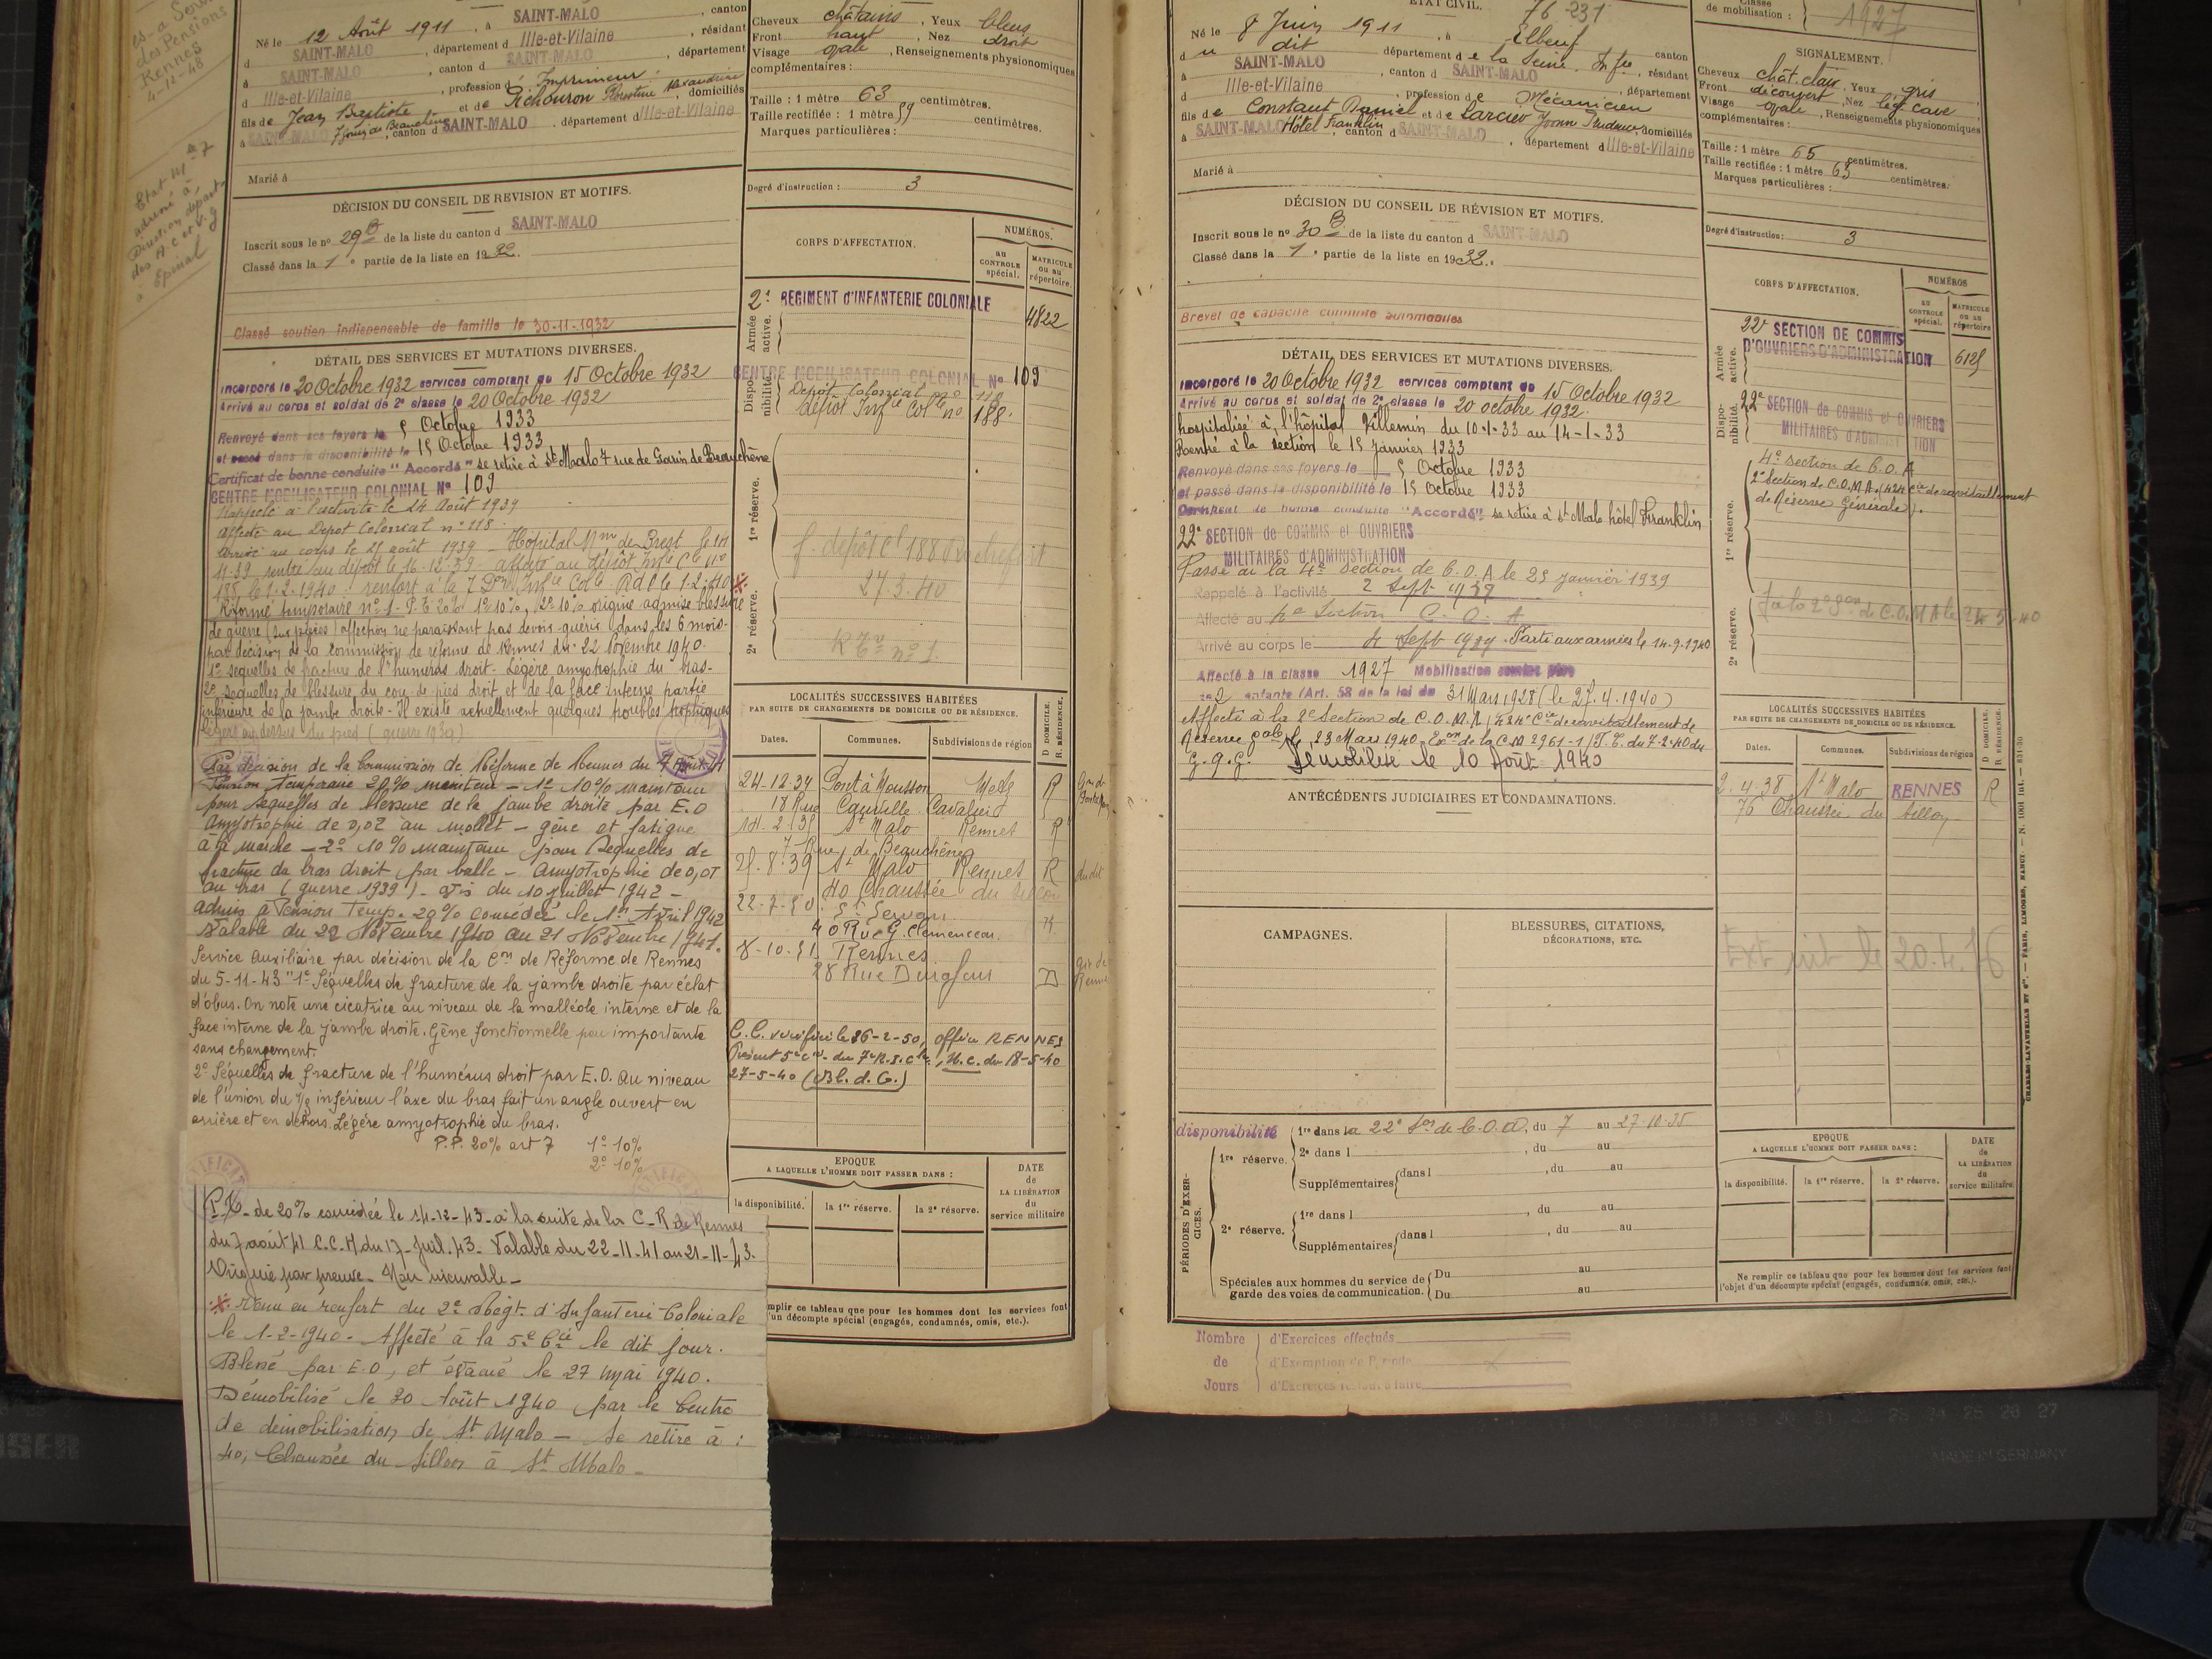 es - a Serv
des Pensions
Rennes
4-12-48
Etat
adressé à
Direction départ
des A C et V. G
à Epinal
Né le 12 Août 1911, à SAINT-MALO, canton
d SAINT-MALO, département d Ille-et-Vilaine, résidant
à SAINT-MALO, canton d SAINT-MALO, département
d Ille-et-Vilaine, profession d' Imprimeur
fils de Jean Baptiste et de Florentine, domiciliés
à SAINT-MALO, canton d SAINT-MALO, département d Ille-et-Vilaine
Marié à
DÉCISION DU CONSEIL DE REVISION ET MOTIFS.
Inscrit sous le n° 29 B de la liste du canton d SAINT-MALO
Classé dans la 1e partie de la liste en 1932.
Classé soutien indispensable de famille le 30-11-1932
DÉTAIL DES SERVICES ET MUTATIONS DIVERSES.
Incorporé le 20 Octobre 1932 services comptant du 15 Octobre 1932
Arrivé au corps et soldat de 2e classe le 20 Octobre 1932
Renvoyé dans ses foyers le 5 Octobre 1933
et passé dans la disponibilité le 15 Octobre 1933
Certificat de bonne conduite "Accordé" se retire à St Malo 7 rue de Garin de Beauchêne
CENTRE MOBILISATEUR COLONIAL N° 109
Rappelé à l'activité le 24 Août 1939
affecté au Dépôt Colonial n° 118.
arrivé au corps le 25 août 1939 - Hôpital Mme de Brest le 14
11-39 rentre au dépôt le 16-12-39 - affecté au dépôt Infie Cle n°
188 le 1-2-1940 renfort à la 7 Don Infie Cole Rdl le 1-2-40
Réformé temporaire n° 1 - P.T 20% 1° 10%, 2° 10% origine admise blessure
de guerre (sur pièces) affection ne paraissant pas devoir guérir dans les 6 mois-
par décision de la commission de réforme de Rennes du 22 Novembre 1940.
1° sequelles de fracture de l'humérus droit - Légère amyotrophie du bras-
2° sequelles de blessure du cou de pied droit et de la face interne partie
inférieure de la jambe droite - Il existe actuellement quelques troubles trophiques
légers au dessus du pied (guerre 1939)
Par décision de la Commission de Réforme de Rennes du 7 août 41
Pension temporaire 20% maintenu - 1° 10% maintenu
pour séquelles de blessure de la jambe droite par E.O
amyotrophie de 0,02 au mollet - gêne et fatigue
à la marche - 2° 10% maintenu pour Séquelles de
fracture du bras droit par balle - amyotrophie de 0,01
au bras (guerre 1939) - avis du 10 juillet 1942 -
admis à Pension Temp. 20% concédée le 1er Avril 1942
valable du 22 Novembre 1940 au 21 Novembre 1941.
Service Auxiliaire par décision de la Con de Réforme de Rennes
du 5-11-43 "1° Séquelles de fracture de la jambe droite par éclat
d'obus. On note une cicatrice au niveau de la malléole interne et de la
face interne de la jambe droite. Gêne fonctionnelle peu importante
sans changement.
2° Séquelles de fracture de l'humérus droit par E.O. au niveau
de l'union du 1/3 inférieur l'axe du bras fait un angle ouvert en
arrière et en dehors. Légère amyotrophie du bras.
P.P. 20% art 7 1° 10%
2° 10%
P.T. de 20% concédée le 14-12-43 à la suite de la C-R de Rennes
du 7 août 41 C.C.M. du 17-Juil. 43 - Valable du 22-11-41 au 21-11-43.
Origine par preuve - Non incurable -
Venu en renfort du 2e Régt. d'Infanterie Coloniale
le 1-2-1940. Affecté à la 5e Cie le dit jour.
Blessé par E.O, et évacué le 27 Mai 1940.
Démobilisé le 30 Août 1940 par le Centre
de démobilisation de St Malo - Se retire à :
40, Chaussée du Sillon à St Malo -
Cheveux châtains, Yeux bleus
Front haut, Nez droit
Visage ovale, Renseignements physionomiques
complémentaires :
Taille : 1 mètre 63 centimètres.
Taille rectifiée : 1 mètre 59 centimètres.
Marques particulières :
Degré d'instruction : 3
CORPS D'AFFECTATION.
NUMÉROS.
AU CONTROLE spécial.
MATRICULE ou au répertoire.
Armée active.
2e REGIMENT d'INFANTERIE COLONIALE 4822
Disponibilité.
CENTRE MOBILISATEUR COLONIAL N° 109
Dépôt Colonial n° 118
dépôt Infie Colle n° 188.
1re réserve.
f. depôt Cl 188 Rochefort
27.3.40
2e réserve.
R Tre n° 1
LOCALITÉS SUCCESSIVES HABITÉES
PAR SUITE DE CHANGEMENTS DE DOMICILE OU DE RÉSIDENCE.
D DOMICILE.
R. RÉSIDENCE.
Dates. Communes. Subdivisions de région
24-12-34 Pont à Mousson Metz R
18 Rue Cavalier
14-2-35 St Malo Rennes R
7 Rue de Beauchêne
25-8-39 St Malo Rennes R du dit
40 Chaussée du Sillon
22-7-50 St Servan R
40 Rue G. Clemenceau.
8-10-51 Rennes. D
28 Rue
C.C. vérifiée le 16-2-50, office RENNES
Présent 5e Cie du 7e R.I.Cle, U.C. du 18-5-40
27-5-40 (Bl. d. G.)
EPOQUE
A LAQUELLE L'HOMME DOIT PASSER DANS :
la disponibilité. la 1re réserve. la 2e réserve.
DATE
de
LA LIBÉRATION
du
service militaire
mplir ce tableau que pour les hommes dont les services font
'un décompte spécial (engagés, condamnés, omis, etc.).
ETAT CIVIL. 76 231
Né le 8 Juin 1911, à Elbeuf canton
d u dit département de la Seine Infre, résidant
à SAINT-MALO, canton d SAINT-MALO, département
d Ille-et-Vilaine, profession de Mécanicien
fils de Constant Daniel et de, domiciliés
à SAINT-MALO Hôtel Franklin, canton d SAINT-MALO, département d Ille-et-Vilaine
Marié à
DÉCISION DU CONSEIL DE RÉVISION ET MOTIFS.
Inscrit sous le n° 30 B de la liste du canton d SAINT-MALO
Classé dans la 1e partie de la liste en 1932.
Brevet de capacité conduite automobiles
DÉTAIL DES SERVICES ET MUTATIONS DIVERSES.
Incorporé le 20 Octobre 1932 services comptant de 15 Octobre 1932
Arrivé au corps et soldat de 2e classe le 20 octobre 1932.
hospitalisé à l'hôpital Villemin du 10-1-33 au 14-1-33
Rentré à la section le 15 janvier 1933
Renvoyé dans ses foyers le 5 Octobre 1933
et passé dans la disponibilité le 15 Octobre 1933
Certificat de bonne conduite "Accordé" se retire à St Malo hôtel Franklin
22e SECTION de COMMIS et OUVRIERS
MILITAIRES D'ADMINISTRATION
Passé à la 4e Section de C.O.A le 25 janvier 1939
Rappelé à l'activité 2 Sept 1939
Affecté au 4e Section C.O.A
Arrivé au corps le 4 Sept 1939. Parti aux armées le 14.9.1940
Affecté à la classe 1927 Mobilisation
2 enfants (Art. 58 de la loi du 31 Mars 1928 (le 27.4.1940)
Affecté à la 2e Section de C.O.M.A (424e Cie de ravitaillement de
Réserve Gale) le 23 Mars 1940. Exon de la C.M 2961-1/T.E. du 7-2-40 du
G.Q.G. Démobilisé le 10 Août 1940
ANTÉCÉDENTS JUDICIAIRES ET CONDAMNATIONS.
CAMPAGNES.
BLESSURES, CITATIONS,
DÉCORATIONS, ETC.
PÉRIODES D'EXERCICES.
disponibilité
1re réserve. 1re dans la 22e Son de C.O.A, du 7 au 27-10-35
2e dans l , du au
Supplémentaires dans l , du au
du au
2e réserve. 1re dans l , du au
Supplémentaires dans l , du au
Spéciales aux hommes du service de
garde des voies de communication. Du au
Du au
Nombre d'Exercices effectués
de d'Exemption de Période
Jours d'Exercices restant à faire
Classe
de mobilisation : 1927
SIGNALEMENT.
Cheveux chât. clair, Yeux gris
Front découvert, Nez légt cave
Visage ovale, Renseignements physionomiques
complémentaires :
Taille : 1 mètre 65 centimètres.
Taille rectifiée : 1 mètre 65 centimètres.
Marques particulières :
Degré d'instruction : 3
CORPS D'AFFECTATION.
NUMÉROS
AU CONTROLE spécial.
MATRICULE ou au répertoire
Armée active.
22e SECTION DE COMMIS
D'OUVRIERS D'ADMINISTRATION 6125
Disponibilité.
22e SECTION de COMMIS et OUVRIERS
MILITAIRES D'ADMINISTRATION
1re réserve.
4e section de C.O.A
2e Section de C.O.M.A. (424 Cie de ravitaillement
de Réserve Générale).
2e réserve.
2e Son de C.O.M.A le 24-5-40
LOCALITÉS SUCCESSIVES HABITÉES
PAR SUITE DE CHANGEMENTS DE DOMICILE OU DE RÉSIDENCE.
D DOMICILE.
R RÉSIDENCE.
Dates. Communes. Subdivisions de région
2-4-38 St Malo RENNES R
76 Chaussée du Sillon
Extrait le 20.4.76
EPOQUE
A LAQUELLE L'HOMME DOIT PASSER DANS :
la disponibilité. la 1re réserve. la 2e réserve.
DATE
de
LA LIBÉRATION
du
service militaire.
Ne remplir ce tableau que pour les hommes dont les services font
l'objet d'un décompte spécial (engagés, condamnés, omis, etc.).
CHARLES-LAVAUZELLE ET Cie. — PARIS, LIMOGES, NANCY. — N. 1001 int. — 831-30
18 19 20 21 22 23 24 25 26 27
MADE IN GERMANY